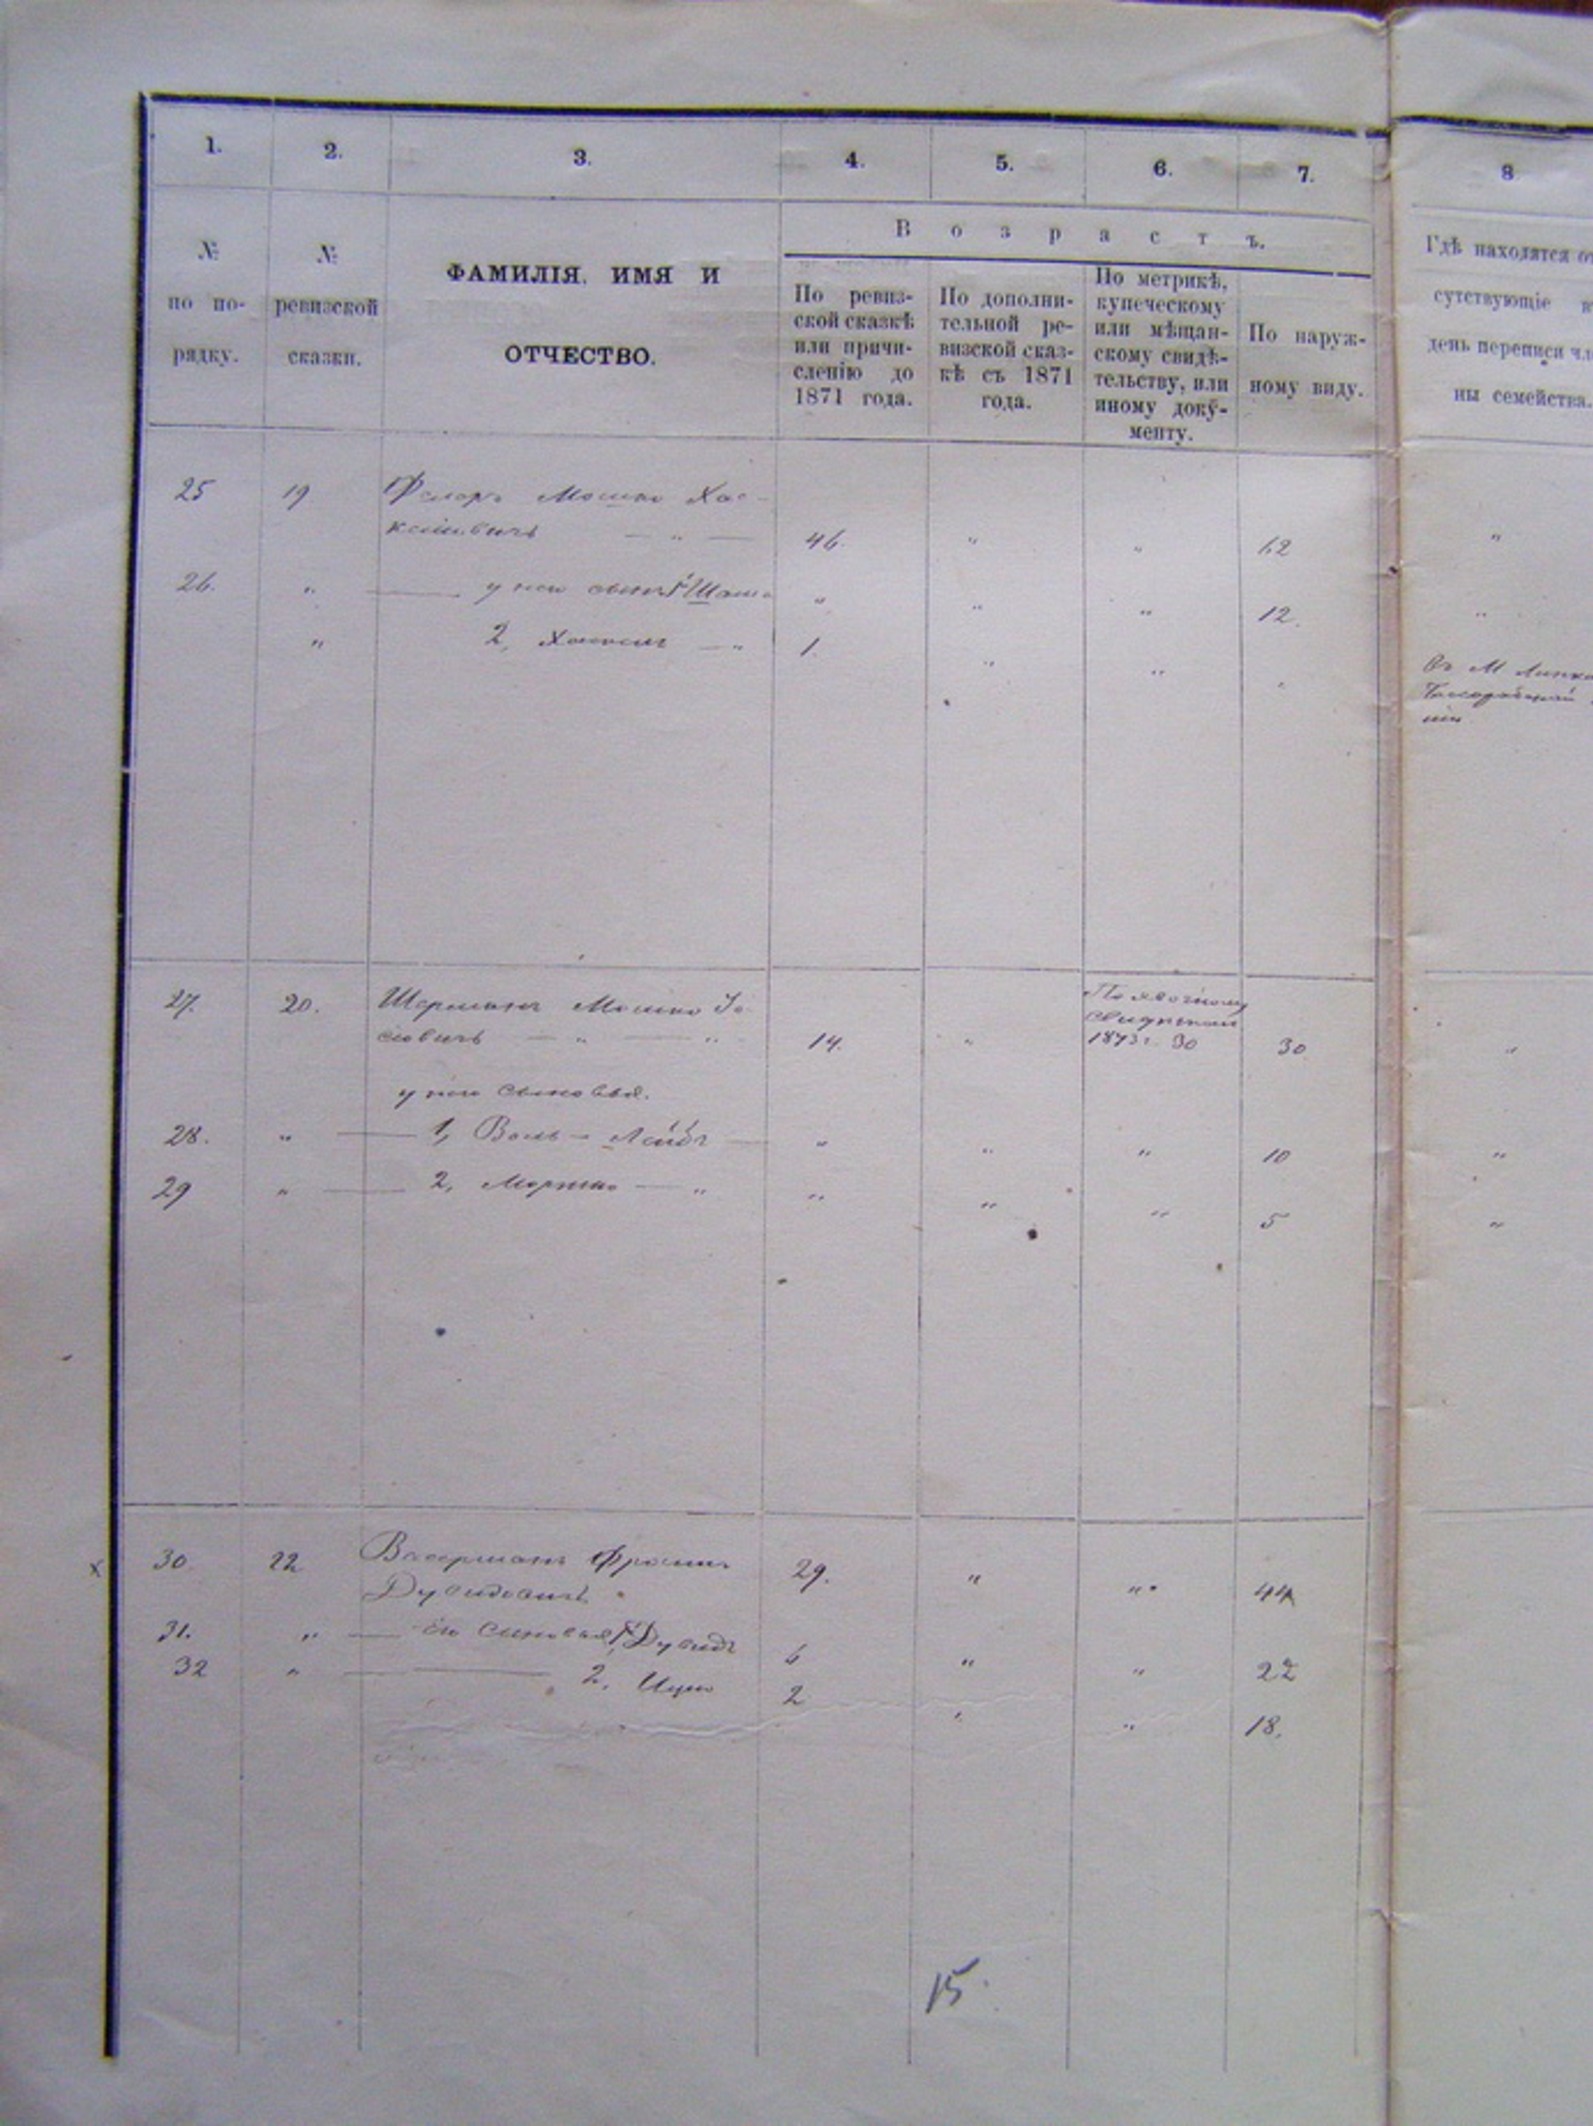 1. 2. 3. 4. 5. 6. 7. 8
№ по по-рядку.
№ ревизской сказки.
ФАМИЛІЯ, ИМЯ И
ОТЧЕСТВО.
В о з р а с т ъ.
По ревиз-
ской сказкѣ
или причи-
сленію до
1871 года.
По дополни-
тельной ре-
визской сказ-
кѣ съ 1871
года.
По метрикѣ,
купеческому
или мѣщан-
скому свидѣ-
тельству, или
иному доку-
менту.
По наруж-
ному виду.
Гдѣ находятся от
сутствующіе въ
день переписи чле
ны семейства.
25 19 Мошко Хас-
46. " " 62 "
26. " у него сынъ 1 " " " 12. "
" 2, Хаскель — " 1. " " "
27. 20. Шерманъ Мошко Іо-
сіовичъ — " — " 14. " 1873 г. 30 30 "
у него сыновья.
28. " 1,Воль-Лейбъ " " " 10 "
29 " 2, Мортко — " " " " 5 "
30. 22 Васерманъ Фроимъ 29. " " 44
Дувидовичъ
31. " его сыновья 1, Дувидъ 6 " " 22
32 " 2, Ицко 2 " " 18.
15.